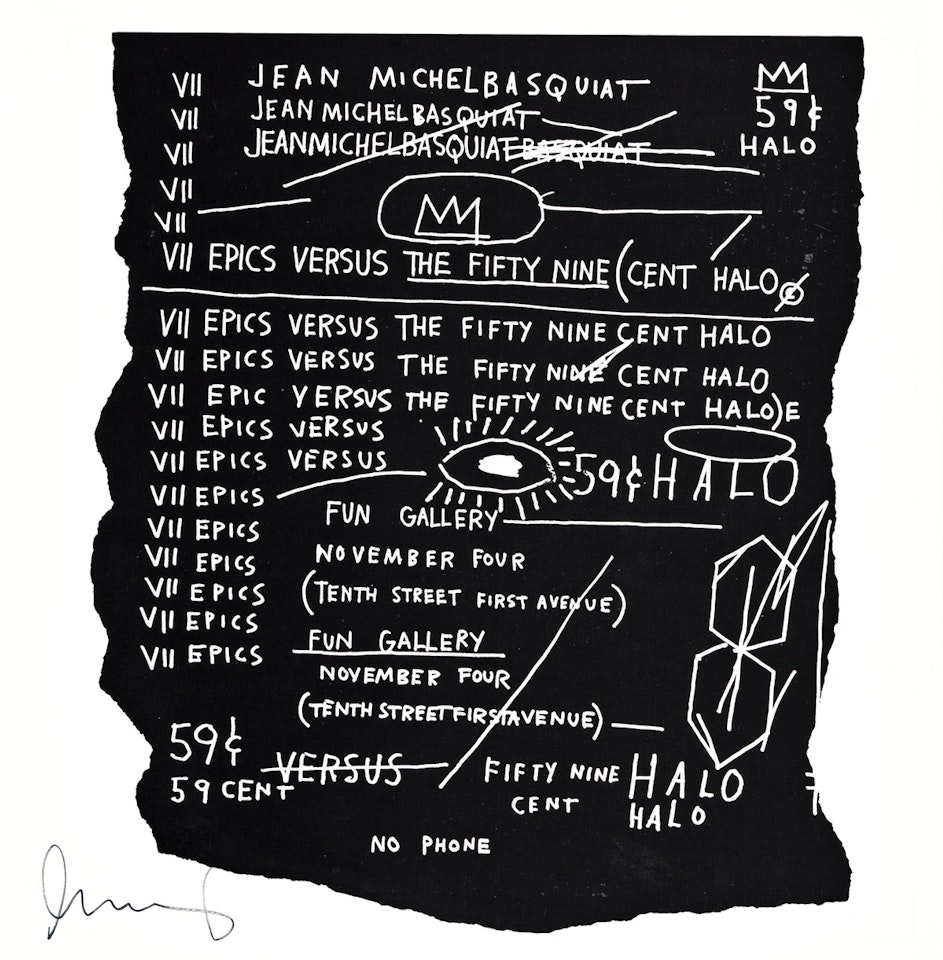 VII JEAN MICHELBASQUIAT
59¢
VII JEAN MICHELBASQUIAT
VII JEANMICHELBASQUIAT BASQUIAT HALO
VII
VII
VII EPICS VERSUS THE FIFTY NINE (CENT HALO ©
VII EPICS VERSUS THE FIFTY NINE CENT HALO
VII EPICS VERSUS THE FIFTY NINE CENT HALO
VII EPIC VERSUS THE FIFTY NINE CENT HALO)E
VII EPICS VERSUS
VII EPICS VERSUS 59¢ HALO
VII EPICS
FUN GALLERY
VII EPICS
NOVEMBER FOUR
VII EPICS
VII EPICS (TENTH STREET FIRST AVENUE)
VII EPICS
FUN GALLERY
VII EPICS
NOVEMBER FOUR
(TENTH STREET FIRST AVENUE)
59¢ VERSUS FIFTY NINE HALO
59 CENT CENT HALO
NO PHONE